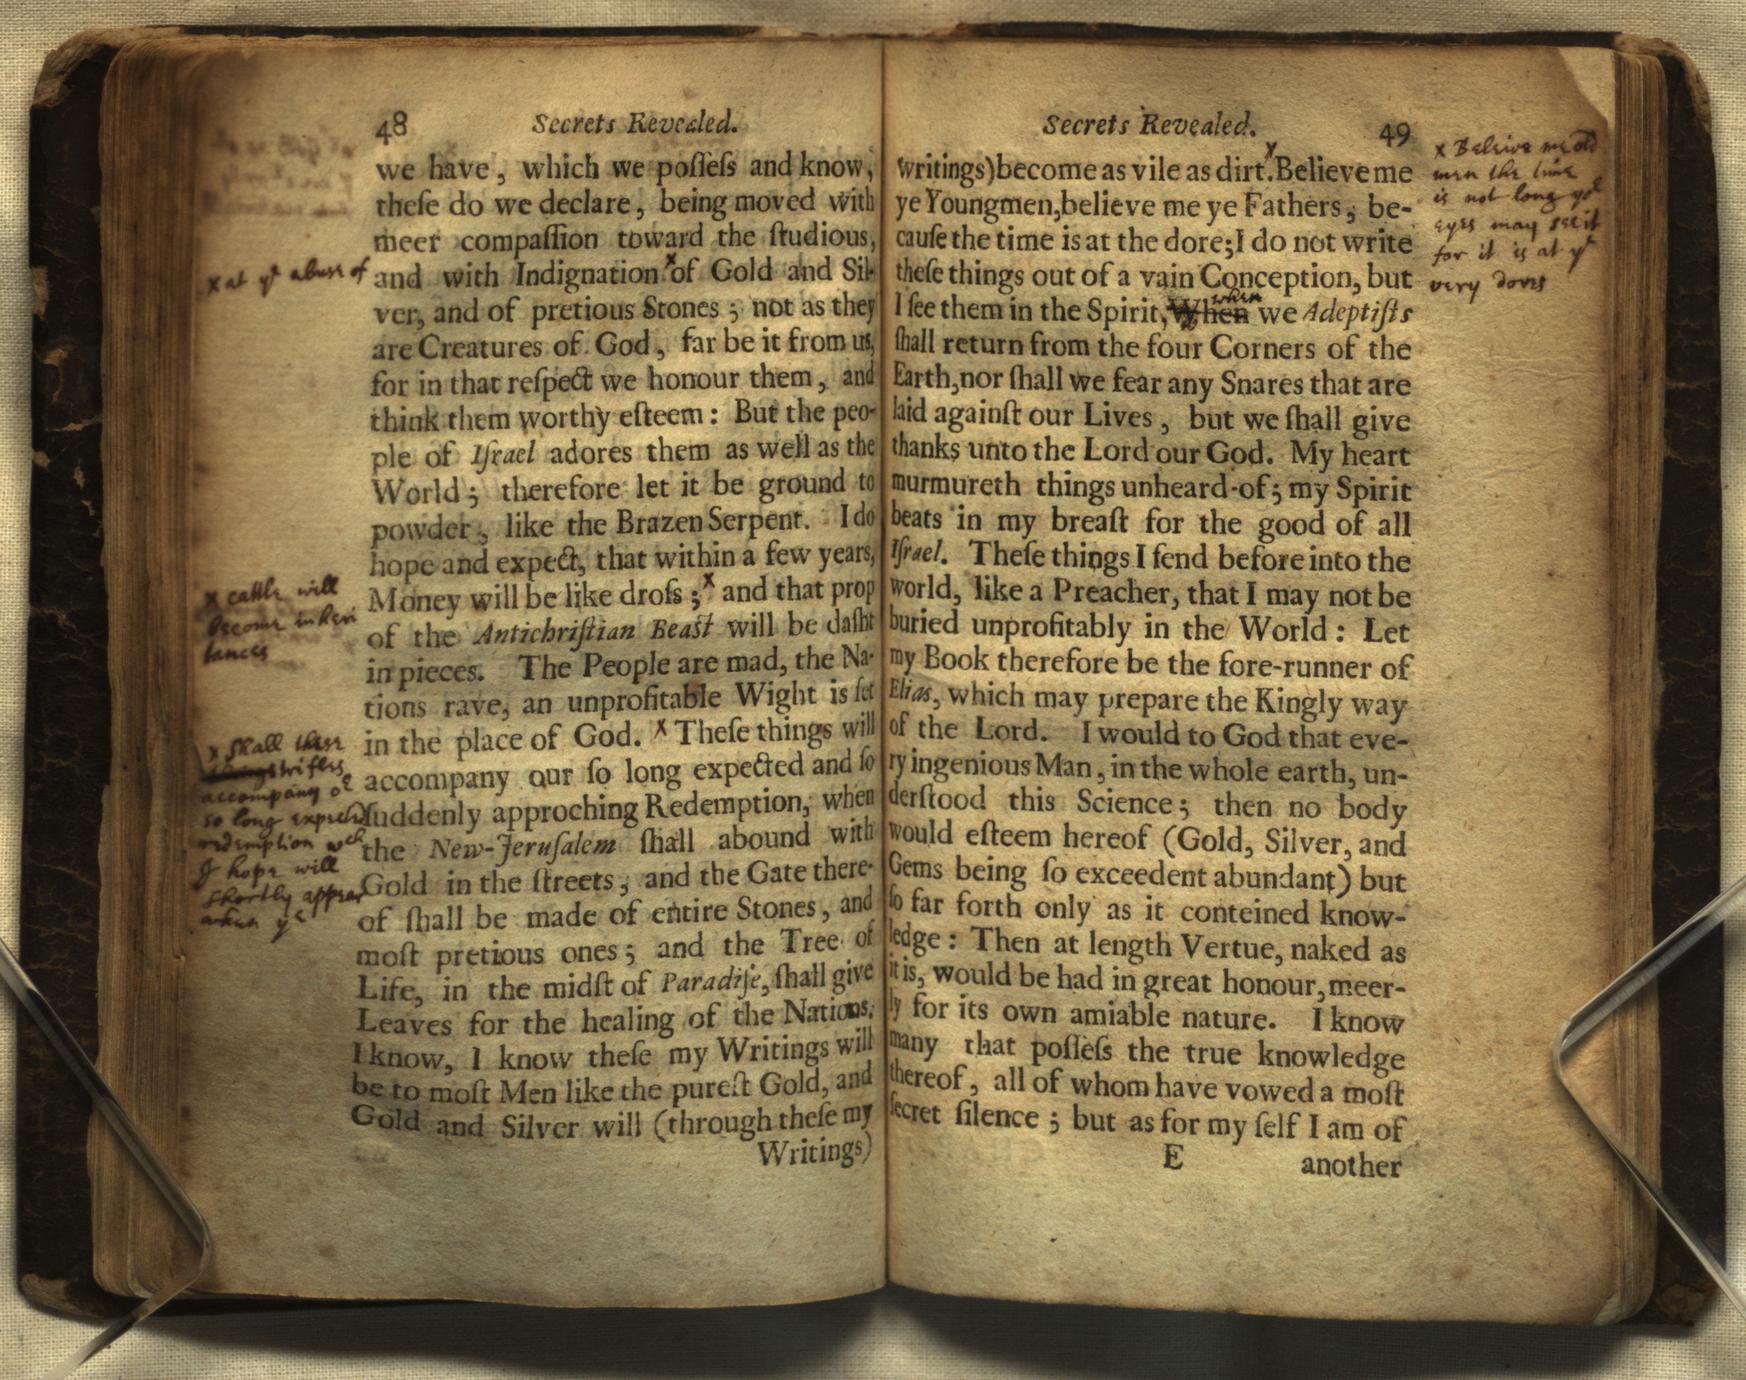 48
Secrets Revealed.
we have, which we poſſeſs and know,
theſe do we declare, being moved with
meer compaſſion toward the ſtudious,
and with Indignation x of Gold and Sil-
ver, and of pretious Stones; not as they
are Creatures of God, far be it from us,
for in that reſpect we honour them, and
think them worthy eſteem: But the peo-
ple of Iſrael adores them as well as the
World; therefore let it be ground to
powder, like the Brazen Serpent. I do
hope and expect, that within a few years,
Money will be like droſs; x and that prop
of the Antichriſtian Beaſt will be daſht
in pieces. The People are mad, the Na-
tions rave, an unprofitable Wight is ſet
in the place of God. x Theſe things will
accompany our ſo long expected and ſo
ſuddenly approching Redemption, when
the New-Jeruſalem ſhall abound with
Gold in the ſtreets, and the Gate there-
of ſhall be made of entire Stones, and
moſt pretious ones; and the Tree of
Life, in the midſt of Paradiſe, ſhall give
Leaves for the healing of the Nations.
I know, I know theſe my Writings will
be to moſt Men like the pureſt Gold, and
Gold and Silver will (through theſe my
Writings)
x at yᵉ abuse of
x cattle will
become inheri
tances
x Shall these
things trifles
accompany oʳ
so long expected
redemption wᶜʰ
I hope will
shortly appear
when yᵉ
Secrets Revealed.
49
Writings) become as vile as dirt. x Believe me
ye Youngmen, believe me ye Fathers, be-
cauſe the time is at the dore; I do not write
theſe things out of a vain Conception, but
I ſee them in the Spirit, When when we Adeptiſts
ſhall return from the four Corners of the
Earth, nor ſhall we fear any Snares that are
laid againſt our Lives, but we ſhall give
thanks unto the Lord our God. My heart
murmureth things unheard-of; my Spirit
beats in my breaſt for the good of all
Iſrael. Theſe things I ſend before into the
world, like a Preacher, that I may not be
buried unprofitably in the World: Let
my Book therefore be the fore-runner of
Elias, which may prepare the Kingly way
of the Lord. I would to God that eve-
ry ingenious Man, in the whole earth, un-
derſtood this Science; then no body
would eſteem hereof (Gold, Silver, and
Gems being ſo exceedent abundant) but
ſo far forth only as it conteined know-
ledge: Then at length Vertue, naked as
it is, would be had in great honour, meer-
ly for its own amiable nature. I know
many that poſſeſs the true knowledge
thereof, all of whom have vowed a moſt
ſecret ſilence; but as for my ſelf I am of
E another
x Beleive me old
men the time
is not long yoʳ
eyes may see it
for it is at yᵉ
very dores